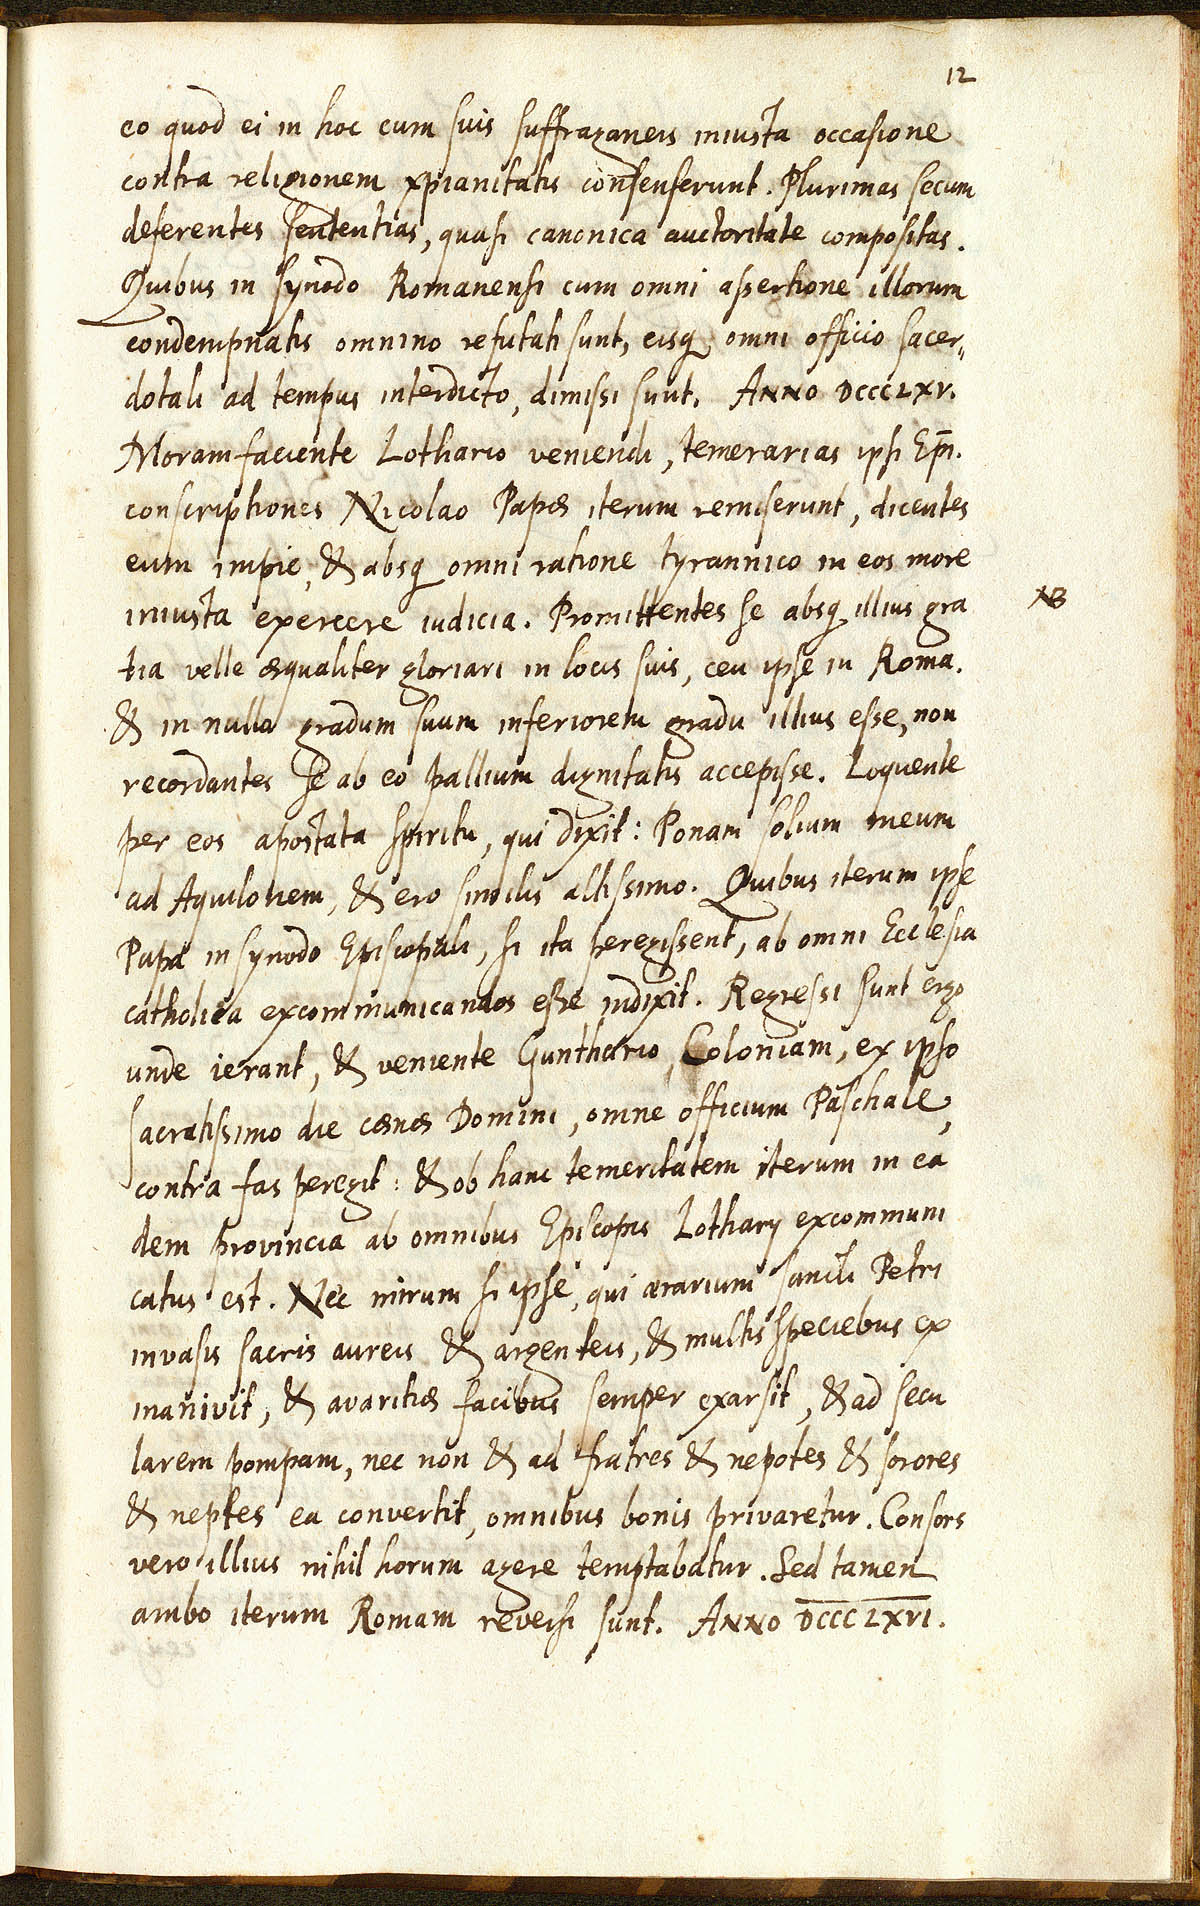 12
eo quod ei in hoc cum suis suffraganeis iniusta occasione
contra religionem xpianitatis consenserunt. Plurimas secum
deferentes sententias, quasi canonica auctoritate compositas.
Quibus in synodo Romanensi cum omni assertione illorum
condempnatis omnino refutati sunt, eisq omni officio sacer„
dotali ad tempus interdicto, dimissi sunt. ANNO DCCCLXV.
Moram faciente Lothario veniendi, temerarias ipsi Ep̄i.
conscriptiones Nicolao Papæ iterum remiserunt, dicentes
eum impie, & absq omni ratione tyrannico in eos more
iniusta exercere iudicia. Promittentes se absq illius gra
NB
tia velle æqualiter gloriari in locis suis, ceu ipse in Roma.
& in nullo gradum suum inferiorem gradu illius esse, non
recordantes se ab eo pallium dignitatis accepisse. Loquente
per eos apostata spiritu, qui dixit: Ponam solium meum
ad Aquilonem, & ero similis altissimo. Quibus iterum ipse
Papa in synodo Episcopali, si ita peregissent, ab omni Ecclesia
catholica excommunicandos esse indixit. Regressi sunt ergo
unde ierant, & veniente Gunthario, Coloniam, ex ipso
sacratissimo die cænæ Domini, omne officium Paschale,
contra fas peregit: & ob hanc temeritatem iterum in ea
dem provincia ab omnibus Episcopis Lothary excommuni
catus est. Nec mirum si ipse, qui ærarium sancti Petri
invasis sacris aureis & argenteis, & multis speciebus ex
inanivit, & avaritiæ facibus semper exarsit, & ad secu
larem pompam, nec non & ad fratres & nepotes & sorores
& neptes ea convertit, omnibus bonis privaretur. Consors
vero illius nihil horum agere temptabatur. Sed tamen
ambo iterum Romam reversi sunt. ANNO DCCCLXVI.